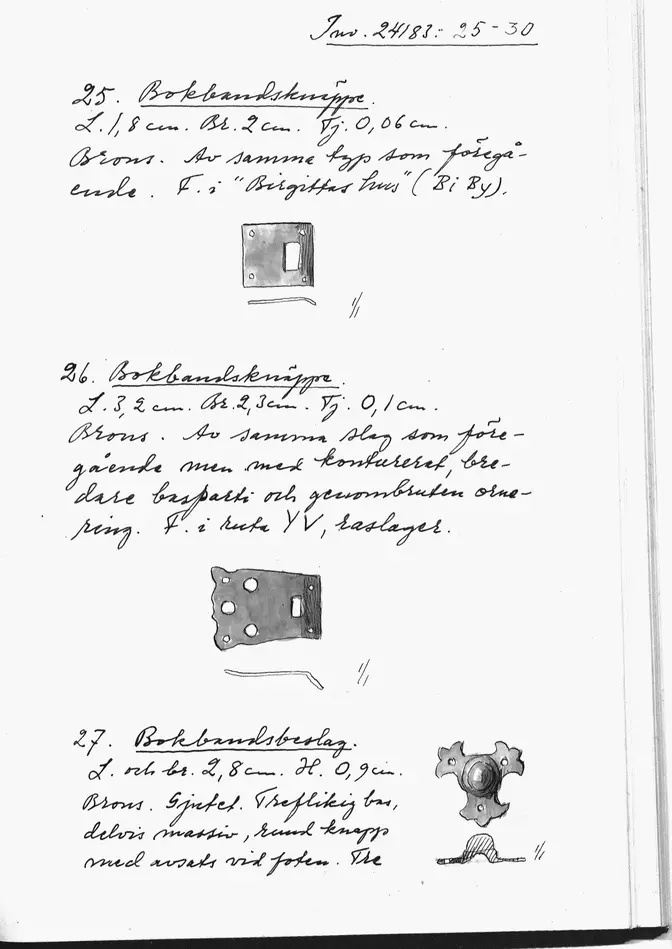 Inv. 24183: 25-30
25. Bokbandsknäppe.
L. 1,8 cm. Br. 2 cm. Tj. 0,06 cm.
Brons. Av samma typ som föregå-
ende. F. i "Birgittas hus" (Bi By).
1/1
26. Bokbandsknäppe.
L. 3,2 cm. Br. 2,3 cm. Tj. 0,1 cm.
Brons. Av samma slag som före-
gående men med konturerat, bre-
dare basparti och genombruten orne-
ring. F. i ruta YV, raslager.
1/1
27. Bokbandsbeslag.
L. och br. 2,8 cm. H. 0,9 cm.
Brons. Gjutet. Treflikig bas,
delvis massiv, rund knapp
med avsats vid foten. Tre
1/1